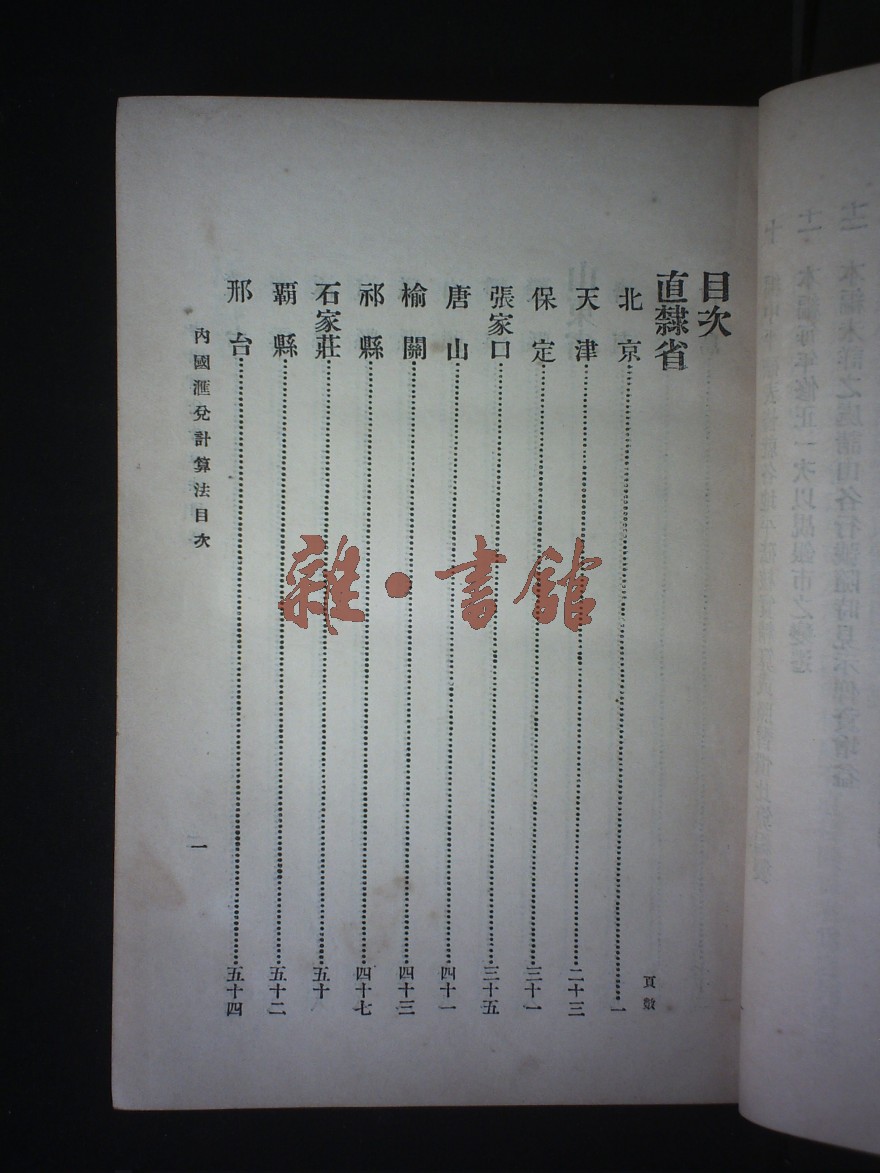 目次
直隸省
頁數
北京……一
天津……二十三
保定……三十一
張家口……三十五
唐山……四十一
榆關……四十三
祁縣……四十七
石家莊……五十
霸縣……五十二
邢台……五十四
內國滙兌計算法目次
一
雜·書館